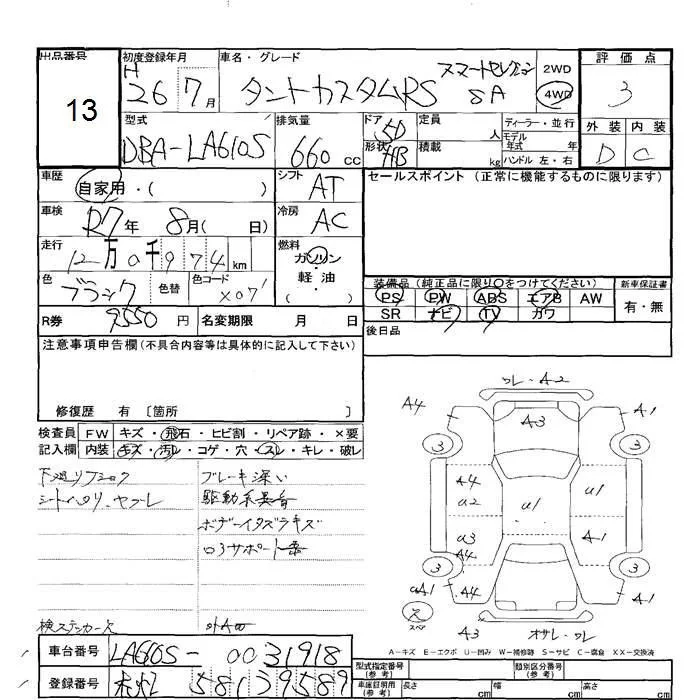 出品番号 初度登録年月 車名・グレード 評価点
13
H 26 7月
タントカスタムRS スマートセレクション SA
2WD
4WD
3
型式 排気量 ドア 5D 定員 人 ディーラー・並行 外装 内装
DBA-LA610S 660cc 形状 HB 積載 kg モデル年式 年 D C
ハンドル 左・右
車歴 シフト セールスポイント (正常に機能するものに限ります)
自家用・( ) AT
車検 冷房
R7年 8月( 日) AC
走行 燃料
12万0千974km ガソリン
軽・油
( )
色 色替 色コード
ブラック X07
装備品 (純正品に限り○をつけてください) 新車保証書
PS PW ABS エアB AW 有・無
SR ナビ TV カワ
R券 9550円 名変期限 月 日
後日品
注意事項申告欄(不具合内容等は具体的に記入して下さい)
修復歴 有 〔箇所 〕
検査員 FW キズ・飛石・ヒビ割・リペア跡・×要
記入欄 内装 キズ・汚レ・コゲ・穴・スレ・キレ・破レ
下廻りフショク ブレーキ深い
シートヘタリ、ヤブレ 駆動系異音
ボデーイタズラキズ
検ステンカー欠
ワレ・A2
A4 A3 A1
3 3
A4 A2 u1 u1
a3 A4 A1
3 3
aA1 A4
ス
スペア
A3 オサレ・ワレ
A-キズ E-エクボ U-凹み W-補修跡 S-サビ C-腐食 XX-交換済
車台番号 LA610S-0031918
登録番号 58139589
型式指定番号(参考) 類別区分番号(参考)
車庫証明用(参考) 長さ cm 幅 cm 高さ cm